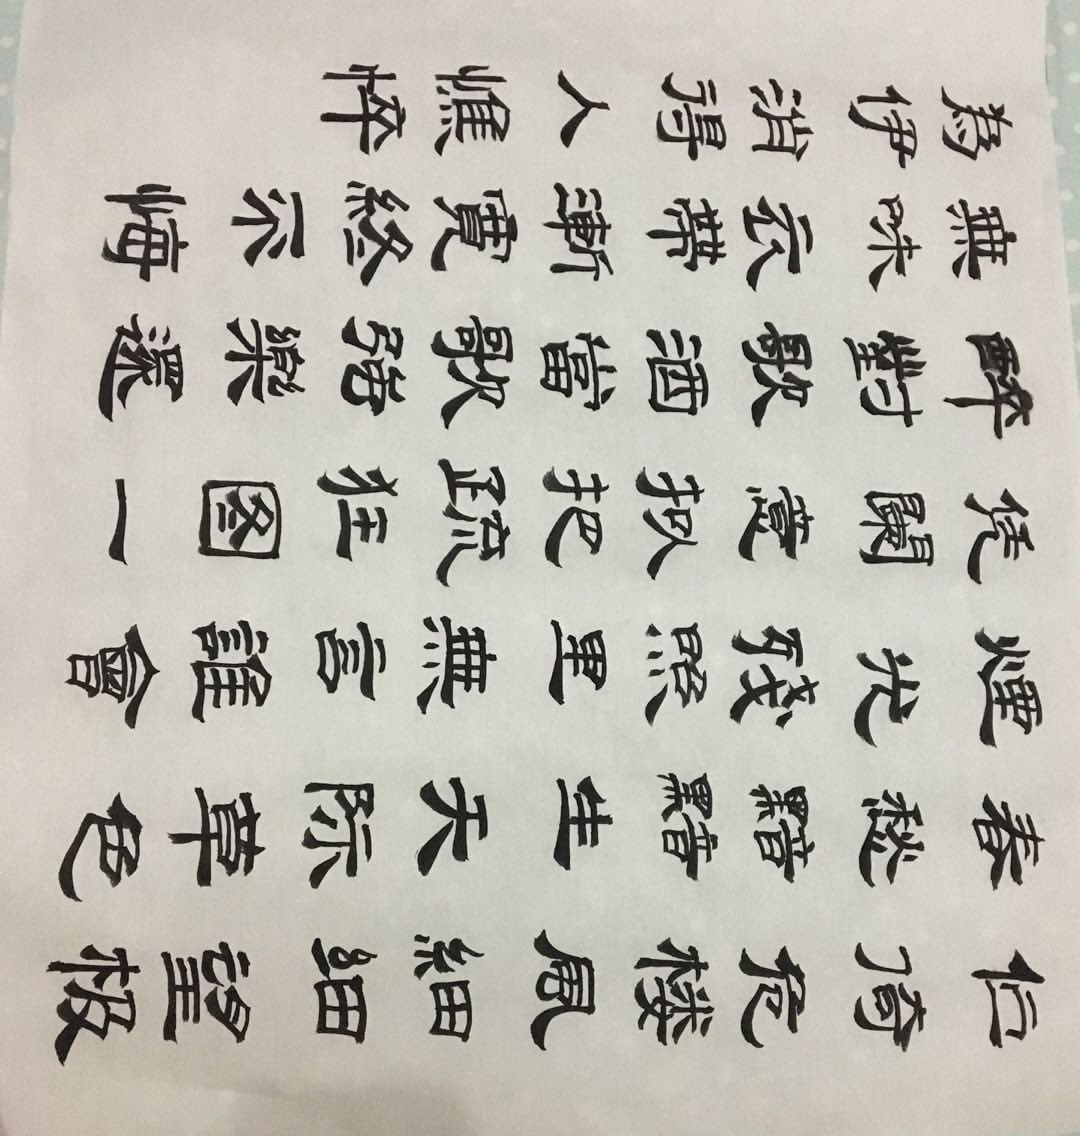 伫倚危楼風細細望极
春愁黯黯生天際草色
煙光殘照里無言誰會
凭闌意拟把疏狂图一
醉對歌酒當歌强樂還
無味衣帶漸寬終不悔
為伊消得人憔悴